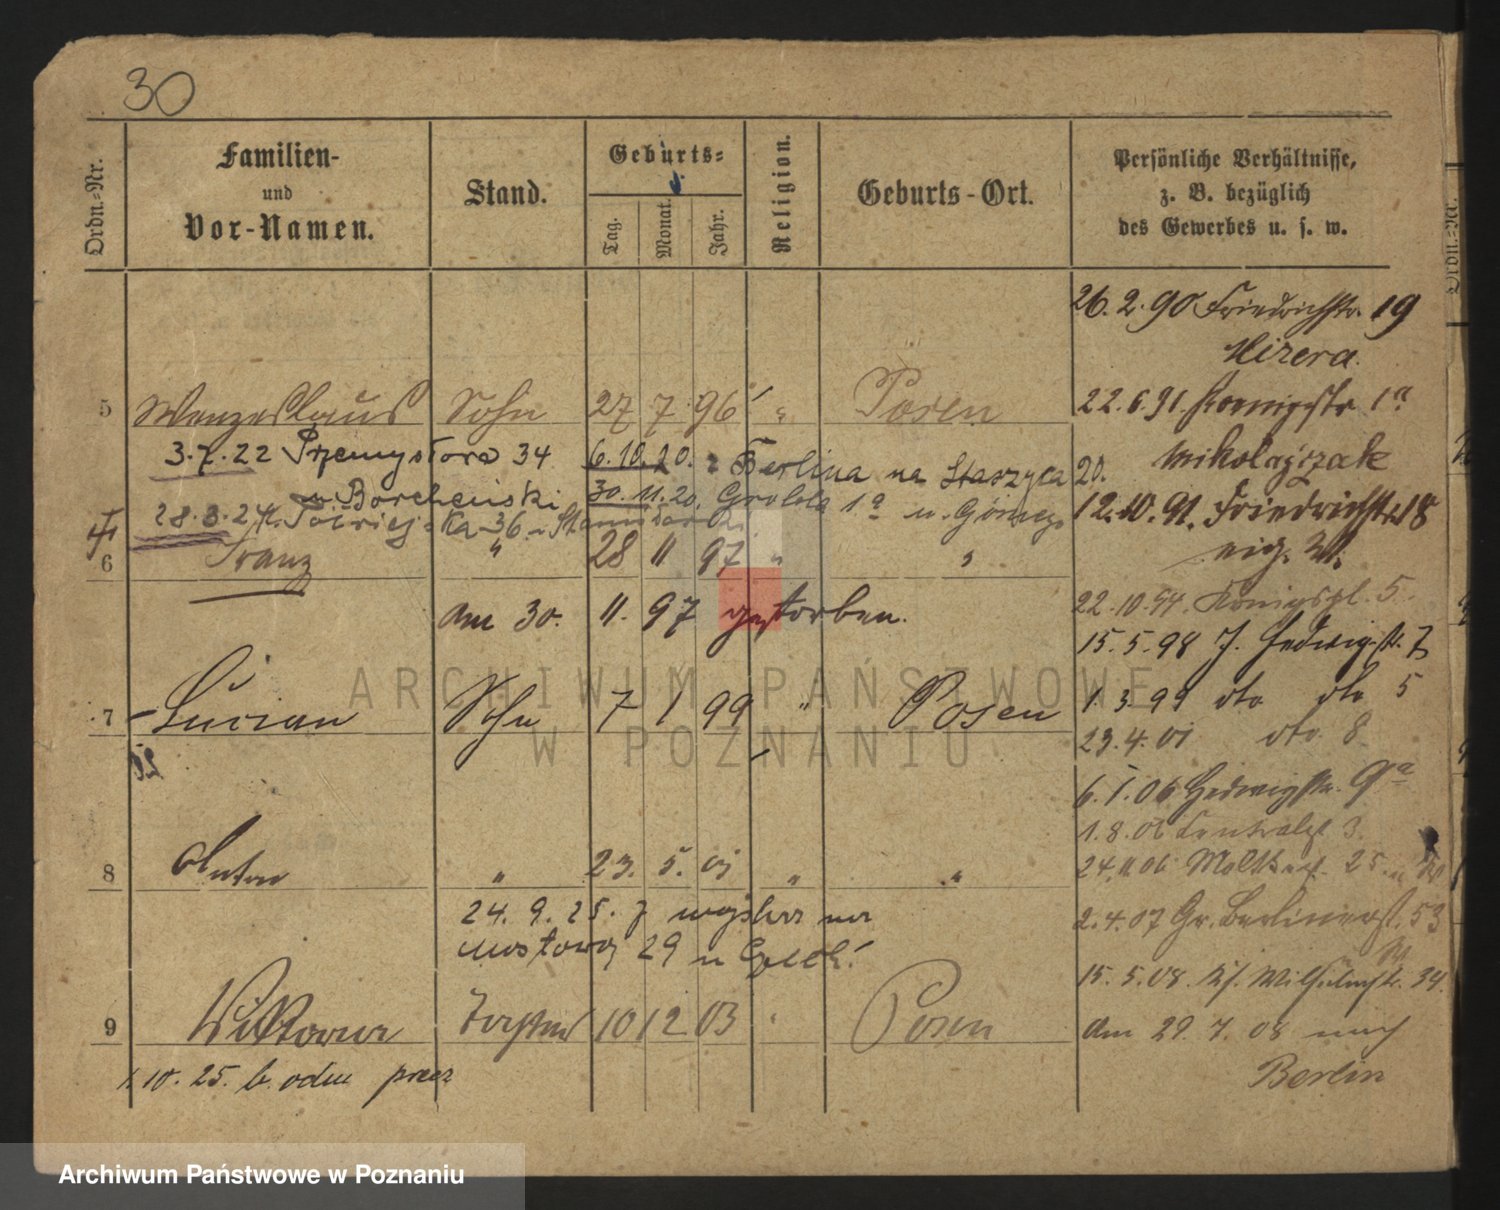 30
Ordn.-Nr.
Familien-
und
Vor-Namen.
Stand.
Geburts-
Tag.
Monat.
Jahr.
Religion.
Geburts-Ort.
Persönliche Verhältnisse,
z. B. bezüglich
des Gewerbes u. s. w.
Ordn.-Nr.
26. 2. 90 Friedrichstr. 19
Mizera.
5 Wenzeslaus Sohn 27 7 96 " Posen
22. 6. 91. 1a
3.7.22 Przemysłowa 34
6.10.20. z Berlina na Staszyca 20.
Mikolajczak
30.11.20. Grobla 1a u.
28.3.24.
12.10.91. Friedrichstr 18
6 Franz " 28 11 97 " "
am 30. 11. 97 gestorben.
22. 10. 94. Königspl. 5.
15. 5. 98 Hedwigstr. 7
7 Lucian Sohn 7 1 99 " Posen
1. 3. 99 dto dto 5
23. 4. 01 dto 8
6. 1. 06 Hedwigstr. 9a
1. 8. 06 3.
8 Anton " 23. 5. 01 " "
24. 11 06 Moltkestr. 25.
24. 9. 25. na
Mostowa 29 u
2. 4. 07 Gr. Berlinerst. 53
15. 5. 08. Wilhelmstr. 34
9 Viktoria Tochter 10 12 03 " Posen
am 29. 7. 08 nach
Berlin
1. 10. 25. b. odm przez
ARCHIWUM PAŃSTWOWE
W POZNANIU
Archiwum Państwowe w Poznaniu